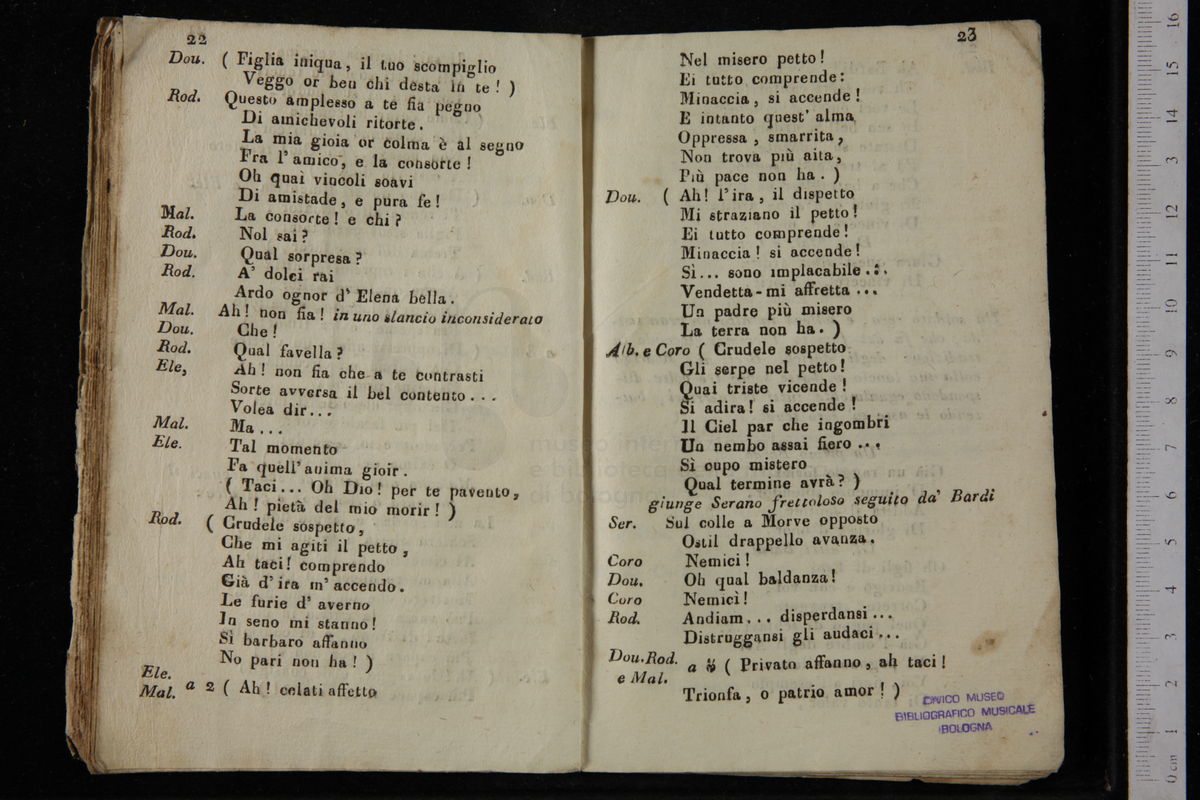 22
Dou. ( Figlia iniqua, il tuo scompiglio
Veggo or ben chi desta in te! )
Rod. Questo amplesso a te fia pegno
Di amichevoli ritorte.
La mia gioia or colma è al segno
Fra l'amico, e la consorte!
Oh quai vincoli soavi
Di amistade, e pura fe!
Mal. La consorte! e chi?
Rod. Nol sai?
Dou. Qual sorpresa?
Rod. A' dolci rai
Ardo ognor d' Elena bella.
Mal. Ah! non fia! in uno slancio inconsiderato
Dou. Che!
Rod. Qual favella?
Ele, Ah! non fia che a te contrasti
Sorte avversa il bel contento...
Volea dir...
Mal. Ma...
Ele. Tal momento
Fa quell'anima gioir.
( Taci... Oh Dio! per te pavento,
Ah! pietà del mio morir! )
Rod. ( Crudele sospetto,
Che mi agiti il petto,
Ah taci! comprendo
Già d'ira m'accendo.
Le furie d' averno
In seno mi stanno!
Sì barbaro affanno
No pari non ha! )
Ele.
Mal. a 2 ( Ah! celati affetto
23
Nel misero petto!
Ei tutto comprende:
Minaccia, si accende!
E intanto quest' alma
Oppressa, smarrita,
Non trova più aita,
Più pace non ha. )
Dou. ( Ah! l'ira, il dispetto
Mi straziano il petto!
Ei tutto comprende!
Minaccia! si accende!
Sì... sono implacabile...
Vendetta-mi affretta...
Un padre più misero
La terra non ha. )
Alb. e Coro ( Crudele sospetto
Gli serpe nel petto!
Quai triste vicende!
Si adira! si accende!
Il Ciel par che ingombri
Un nembo assai fiero...
Sì cupo mistero
Qual termine avrà? )
giunge Serano frettoloso seguito da' Bardi
Ser. Sul colle a Morve opposto
Ostil drappello avanza.
Coro Nemici!
Dou. Oh qual baldanza!
Coro Nemici!
Rod. Andiam... disperdansi...
Distruggansi gli audaci...
Dou. Rod.
e Mal. a ( Privato affanno, ah taci!
Trionfa, o patrio amor! )
CIVICO MUSEO
BIBLIOGRAFICO MUSICALE
BOLOGNA